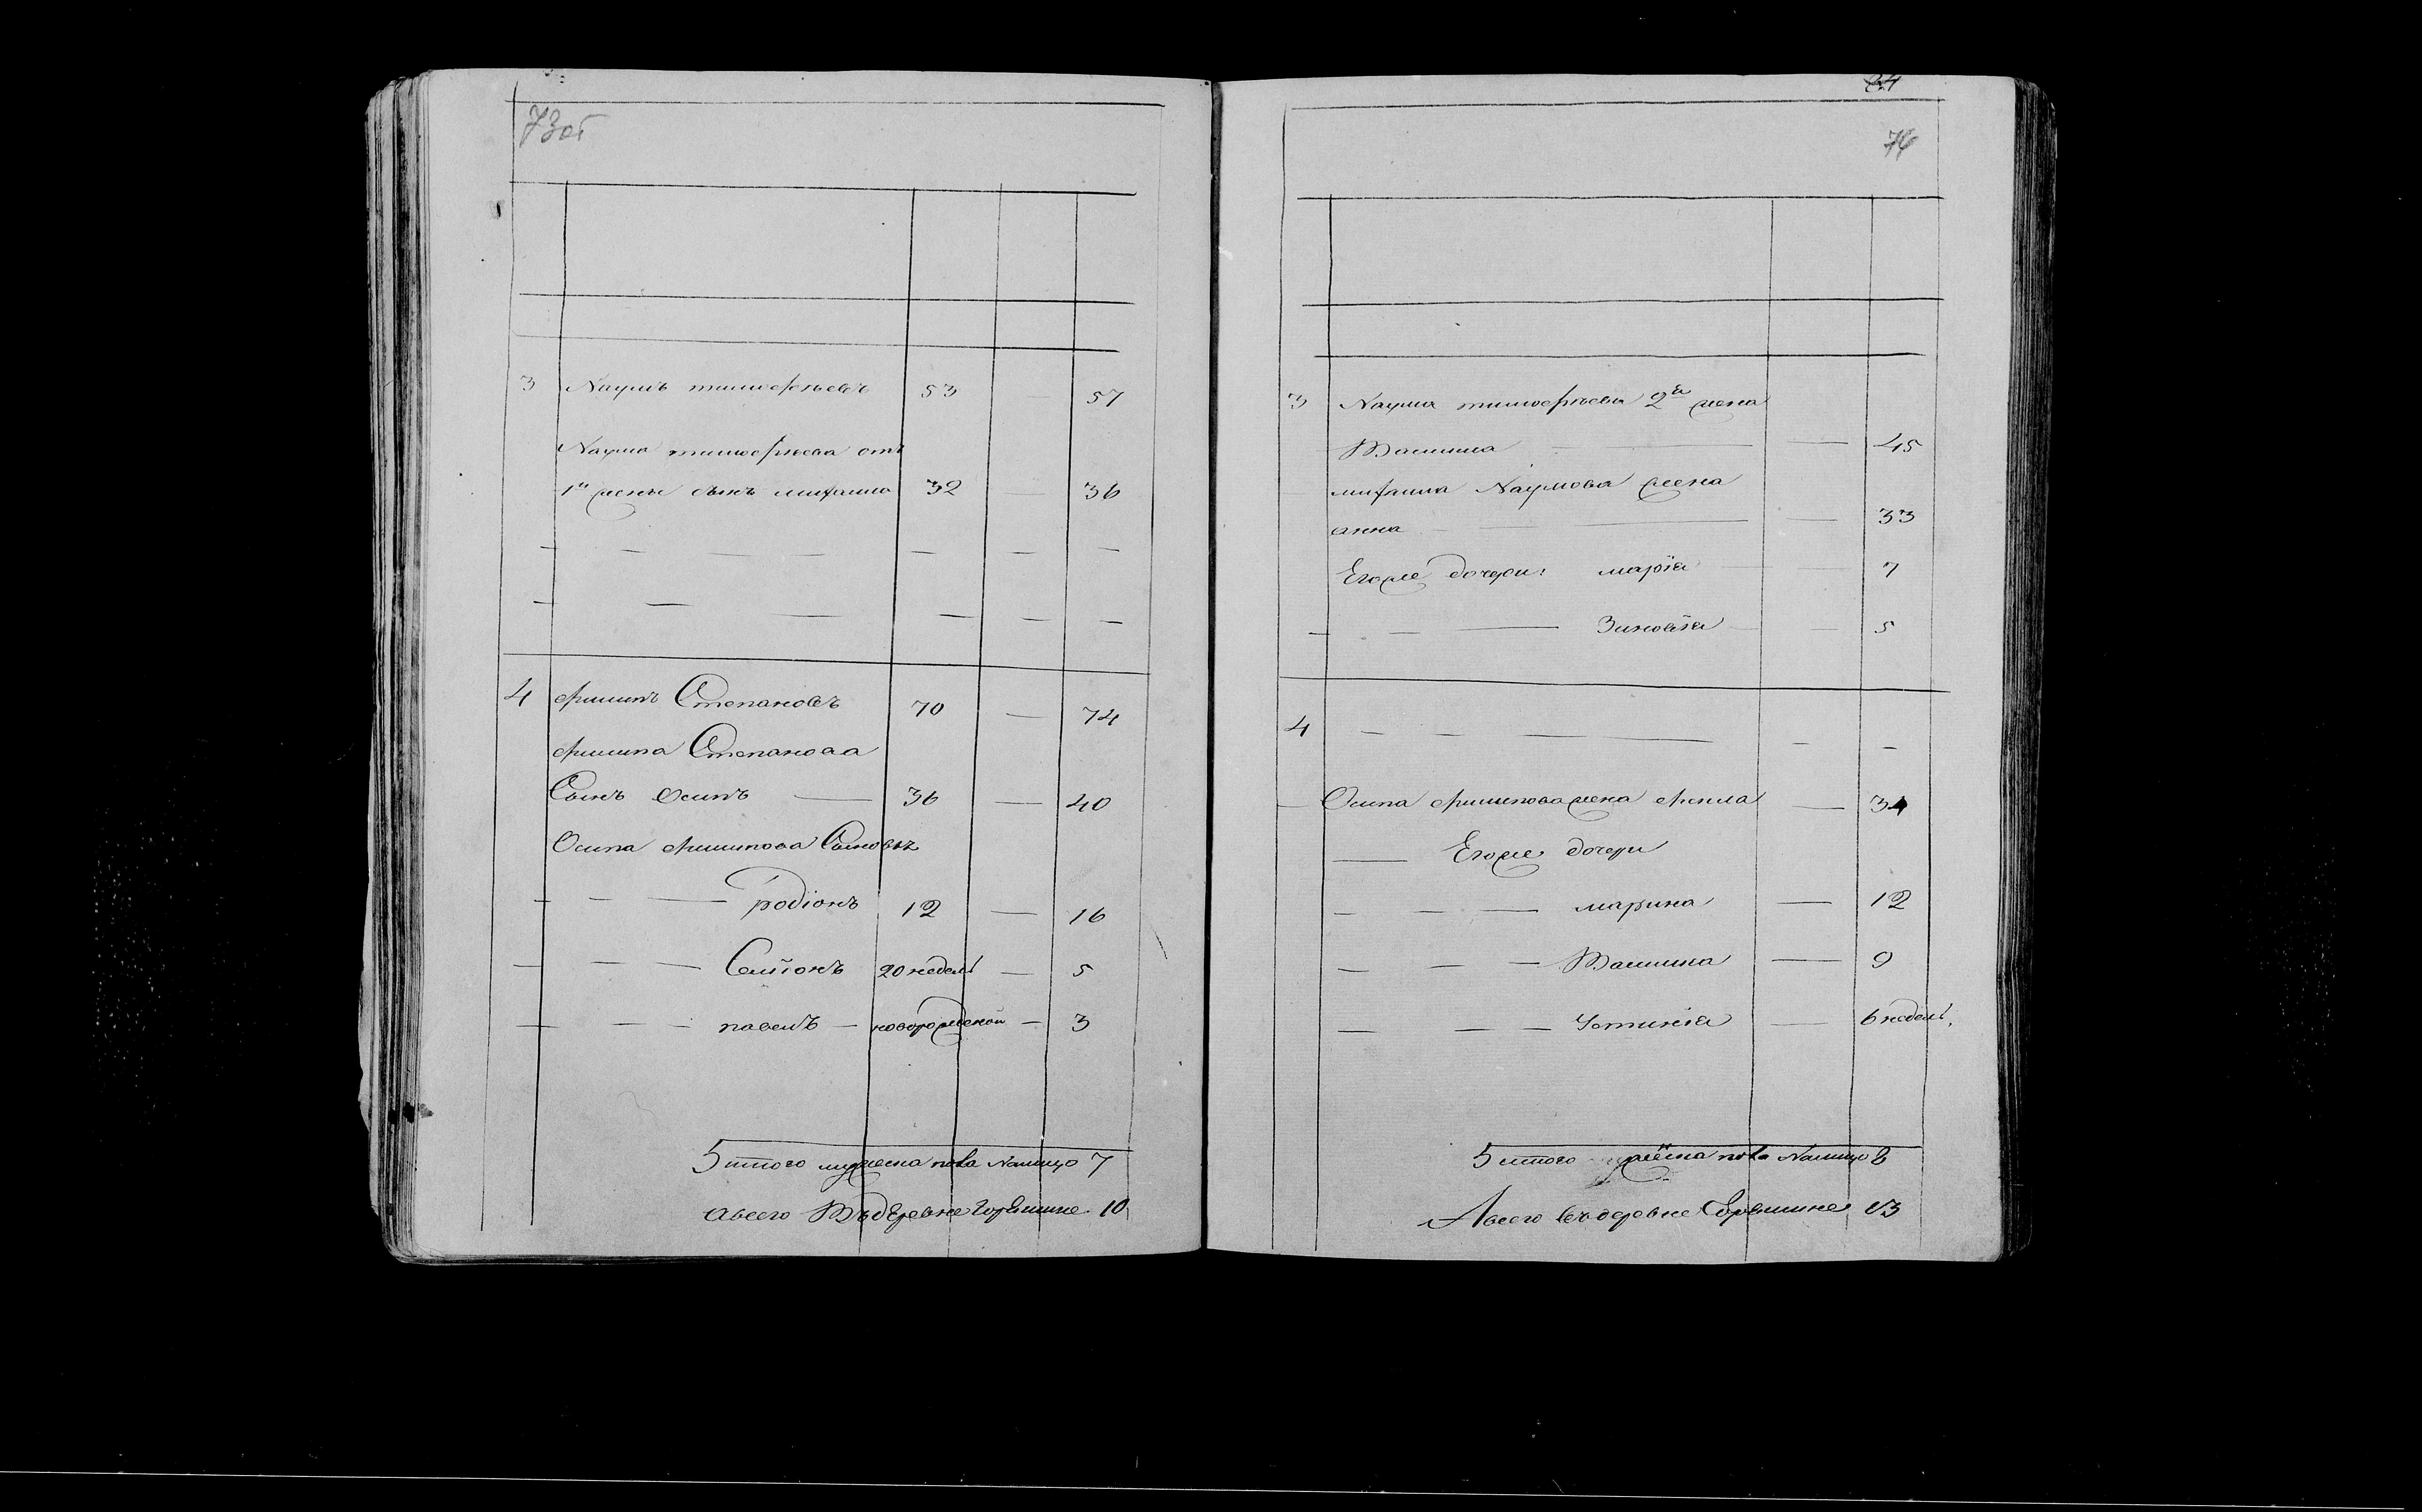 73об
3 Наумъ тимофѣевъ 53 57
Наума тимофѣева отъ
1й жены сынъ михаила 32 36
4 филипъ Степановъ 70 — 74
филипа Степанова
Сынъ Осипъ — 36 — 40
Осипа филипова Сыновья
родіонъ 12 — 16
Семіонъ 20 недель — 5
павелъ — новорожденой — 3
итого мужеска пола Налицо 7
авсего Въ деревне 10
74
3 Наума тимофѣева 2я жена
45
михаила Наумова жена
анна 33
Егоже дочери: марія 7
Зиновія 5
4
Осипа филипова жена фекла 34
Егоже дочери
марина 12
9
Устинія 6 недель.
итого женска пола Налицо 8
Авсего въ деревне 13